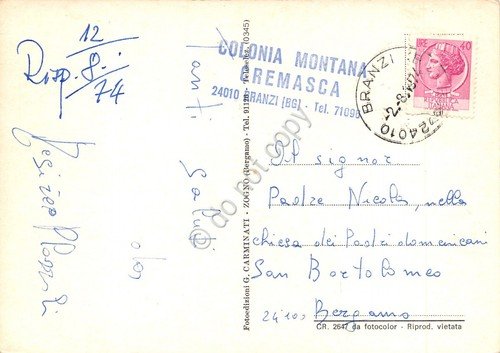 12
Risp. 8.
74
Tanti
Saluti
da
Fotoedizioni G. CARMINATI - ZOGNO (Bergamo) - Tel. 91126 - Telesel. (0345)
COLONIA MONTANA
CREMASCA
24010 BRANZI (BG) - Tel. 71096
24010 BRANZI
-2.8.
40
Il signor
Padre Nicola, nella
chiesa dei Padri domenicani
San Bortolomeo
24100 Bergamo
CR. 2647 da fotocolor - Riprod. vietata
© do not copy